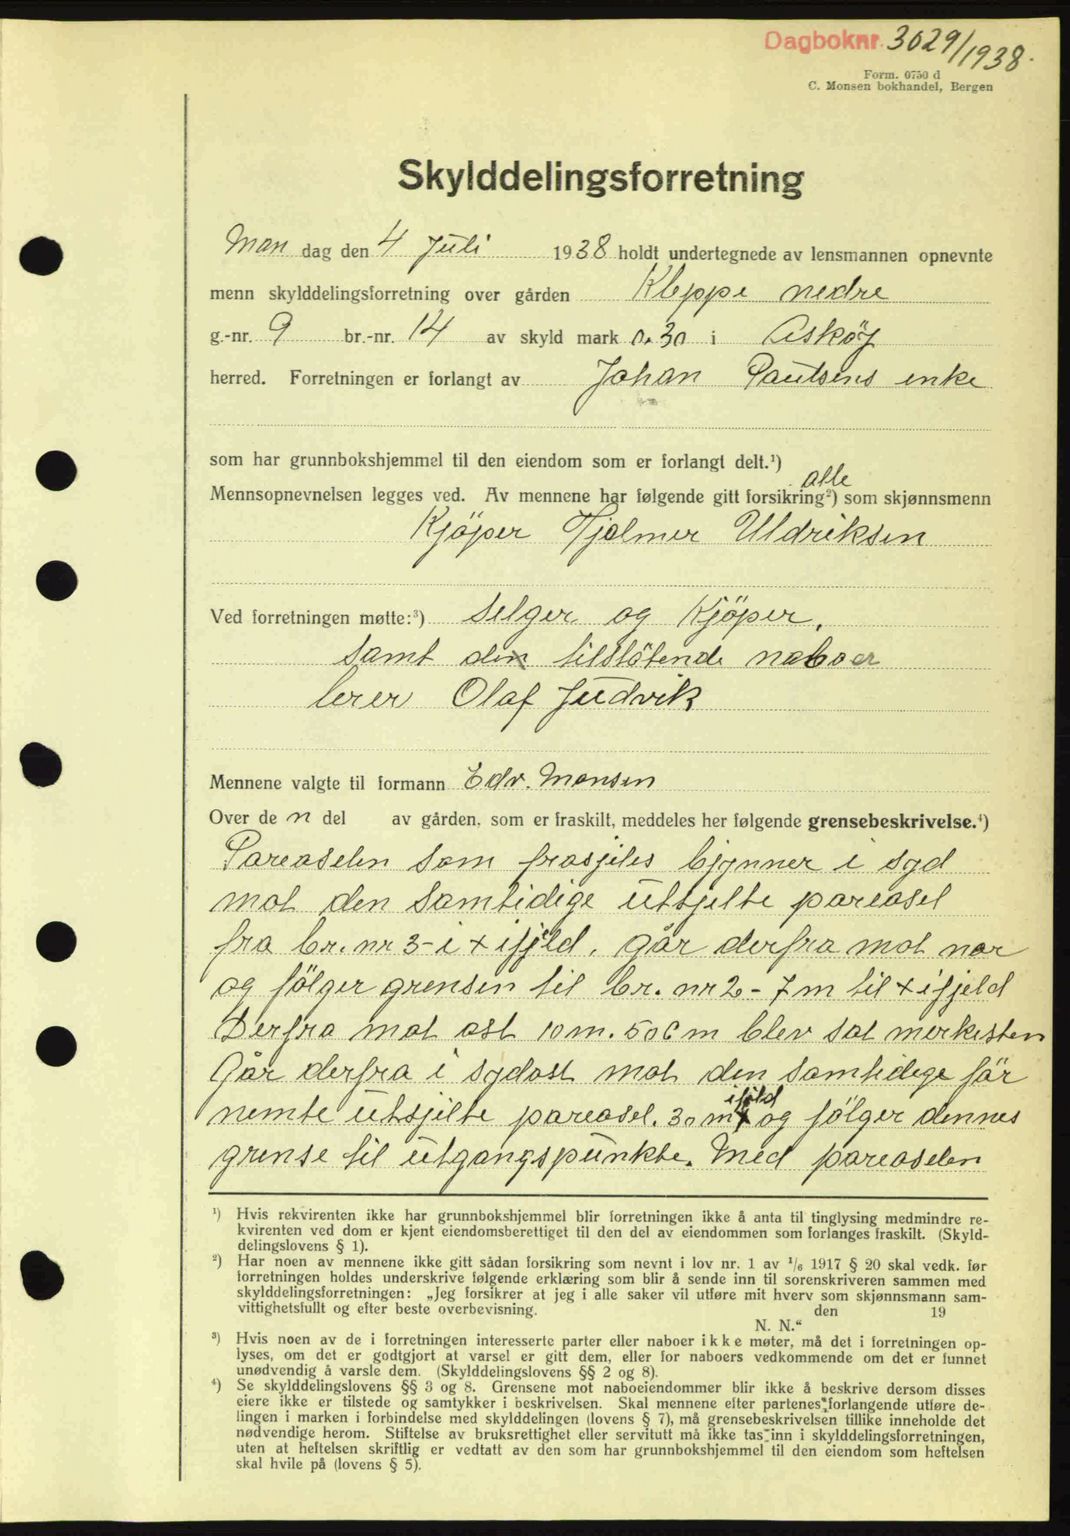 Dagboknr. 3029/1938.
Form. 0750 d
C. Monsen bokhandel, Bergen
Skylddelingsforretning
Man dag den 4 Juli 1938 holdt undertegnede av lensmannen opnevnte
menn skylddelingsforretning over gården Kleppe nedre
g.-nr. 9 br.-nr. 14 av skyld mark 0.30 i Asköy
herred. Forretningen er forlangt av Johan Paulsens enke
som har grunnbokshjemmel til den eiendom som er forlangt delt.¹)
alle
Mennsopnevnelsen legges ved. Av mennene har følgende gitt forsikring²) som skjønnsmenn
Kjöper Hjalmer Uldriksen
Ved forretningen møtte:³) Selger og Kjöper,
samt den tilstötende naboer
lerer Olaf Judvik
Mennene valgte til formann Edv. Monsen
Over de n del av gården, som er fraskilt, meddeles her følgende grensebeskrivelse.⁴)
Pareaselen som frasjeles bjynner i syd
mot den samtidige utsjelte pareasel
fra br. nr 3 - i + i fjeld. går derfra mot nor
og fölger grensen til br. nr 2 - 7 m til + i fjeld
Derfra mot ost 10 m. 50 C m blev sat merkesten
Går derfra i sydost mot den samtidege fär
i fjeld
nemte utsjilte pareasel. 30 m + og fölger dennes
grense til utgangspunkte. Med pareaselen
¹) Hvis rekvirenten ikke har grunnbokshjemmel blir forretningen ikke å anta til tinglysing medmindre re-
kvirenten ved dom er kjent eiendomsberettiget til den del av eiendommen som forlanges fraskilt. (Skyld-
delingslovens § 1).
²) Har noen av mennene ikke gitt sådan forsikring som nevnt i lov nr. 1 av ¹/₆ 1917 § 20 skal vedk. før
forretningen holdes underskrive følgende erklæring som blir å sende inn til sorenskriveren sammen med
skylddelingsforretningen: „Jeg forsikrer at jeg i alle saker vil utføre mit hverv som skjønnsmann sam-
vittighetsfullt og efter beste overbevisning. den 19
N. N.“
³) Hvis noen av de i forretningen interesserte parter eller naboer ikke møter, må det i forretningen op-
lyses, om det er godtgjort at varsel er gitt dem, eller for naboers vedkommende om det er funnet
unødvendig å varsle dem. (Skylddelingslovens §§ 2 og 8).
⁴) Se skylddelingslovens §§ 3 og 8. Grensene mot naboeiendommer blir ikke å beskrive dersom disses
eiere ikke er tilstede og samtykker i beskrivelsen. Skal mennene efter partenes forlangende utføre de-
lingen i marken i forbindelse med skylddelingen (lovens § 7), må grensebeskrivelsen tillike inneholde det
nødvendige herom. Stiftelse av bruksrettighet eller servitutt må ikke tas inn i skylddelingsforretningen,
uten at heftelsen skriftlig er vedtatt av den som har grunnbokshjemmel til den eiendom som heftelsen
skal hvile på (lovens § 5).